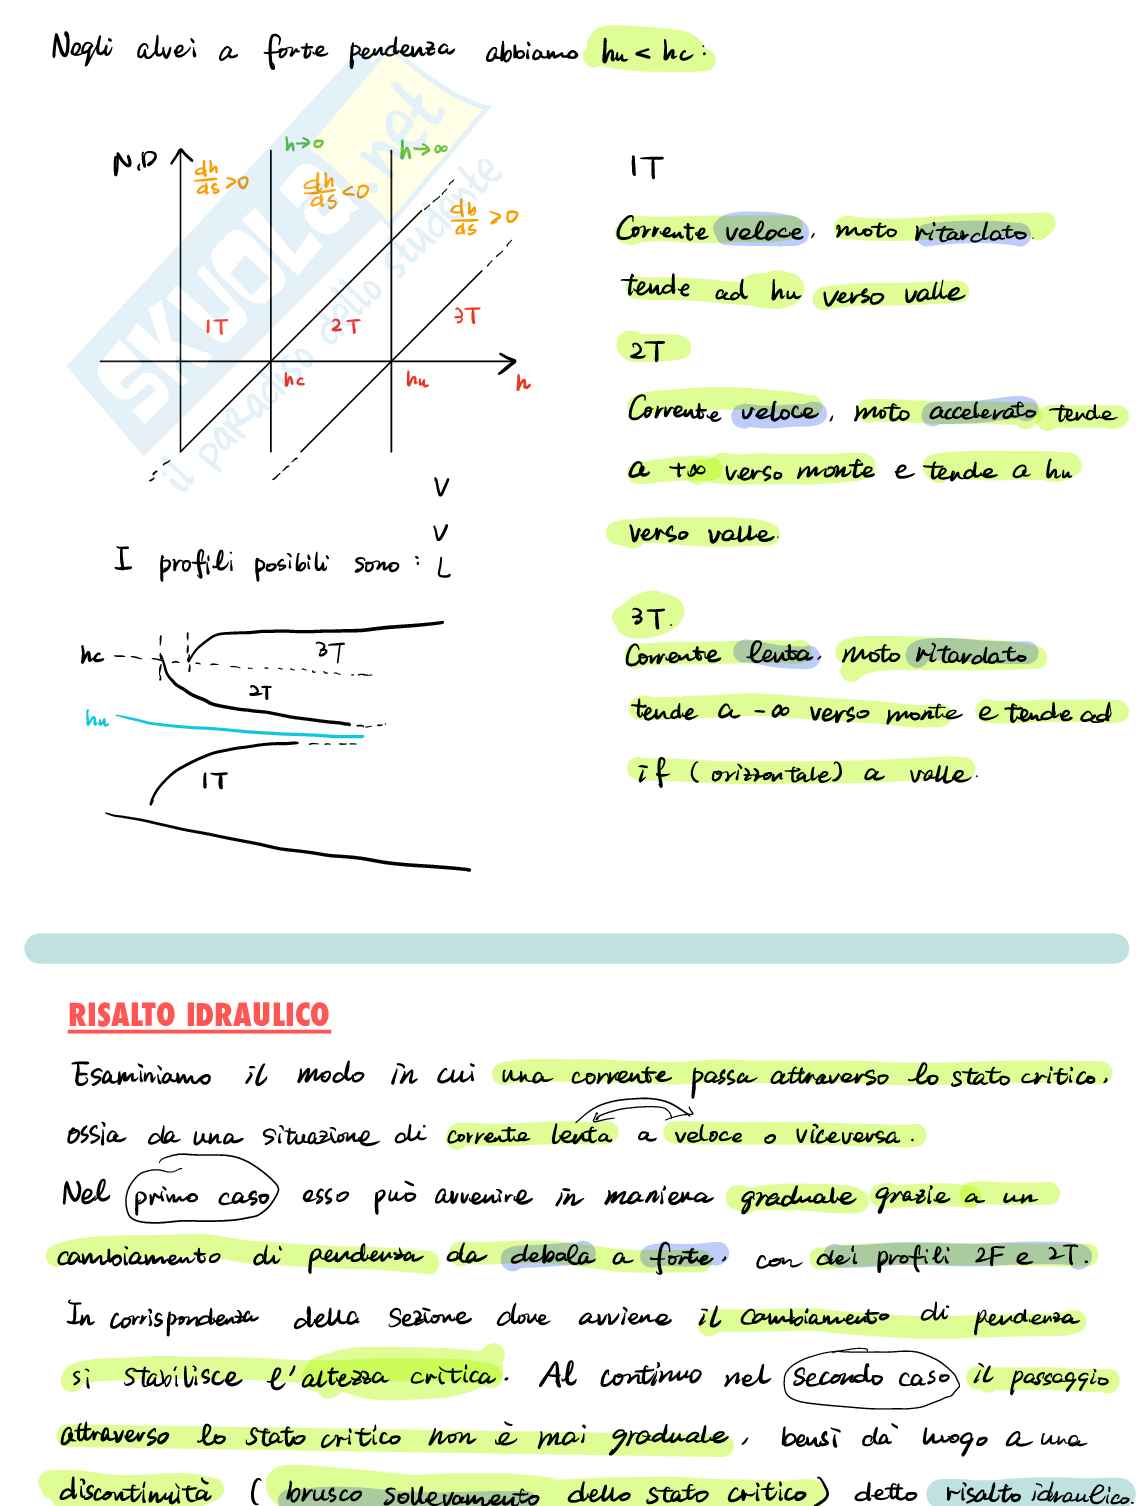 Negli alvei a forte pendenza abbiamo hu < hc:
N,D
dh/ds >0
h→0
dh/ds <0
h→∞
dh/ds >0
1T
2T
3T
hc
hu
h
V
V
I profili posibili sono : L
hc
3T
2T
hu
1T
1T
Corrente veloce, moto ritardato.
tende ad hu verso valle
2T
Corrente veloce, moto accelerato tende
a +∞ verso monte e tende a hu
verso valle.
3T.
Corrente lenta, moto ritardato
tende a -∞ verso monte e tende ad
if (orizzontale) a valle.
SKUOLA.net
il paradiso dello studente
RISALTO IDRAULICO
Esaminiamo il modo in cui una corrente passa attraverso lo stato critico,
ossia da una situazione di corrente lenta a veloce o viceversa.
Nel primo caso esso può avvenire in maniera graduale grazie a un
cambiamento di pendenza da debola a forte, con dei profili 2F e 2T.
In corrispondenza della sezione dove avviene il cambiamento di pendenza
si stabilisce l'altezza critica. Al continuo nel secondo caso il passaggio
attraverso lo stato critico non è mai graduale, bensì dà luogo a una
discontinuità ( brusco sollevamento dello stato critico) detto risalto idraulico.